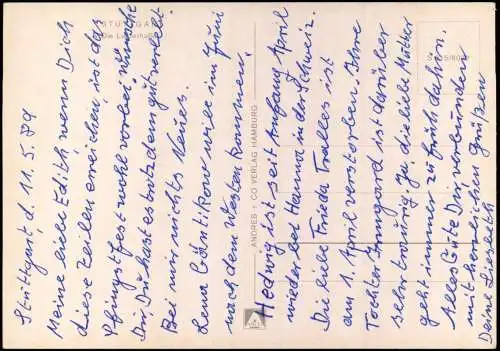 Stuttgart d. 11.5.79
Meine liebe Edith, wenn Dich
diese Zeilen erreichen, ist das
Pfingstfest wohl vorbei. Wünsche
Dir, Du hast es trotzdem gut verlebt.
Bei mir nichts Neues.
Lena will im Juni
nach dem Westen kommen.
Hedwig ist seit Anfang April
wieder bei Hannot in der Schweiz.
Die liebe Frieda Tralles ist
am 1. April verstorben. Ihre
Tochter Irmgard ist darüber
sehr traurig. Ja die liebe Mutter
geht immer zu früh dahin.
Alles Gute Dir verbunden
mit herzlichen Grüßen
Deine Liesbeth
STUTTGART
Die Liederhalle
ANDRES + CO VERLAG HAMBURG